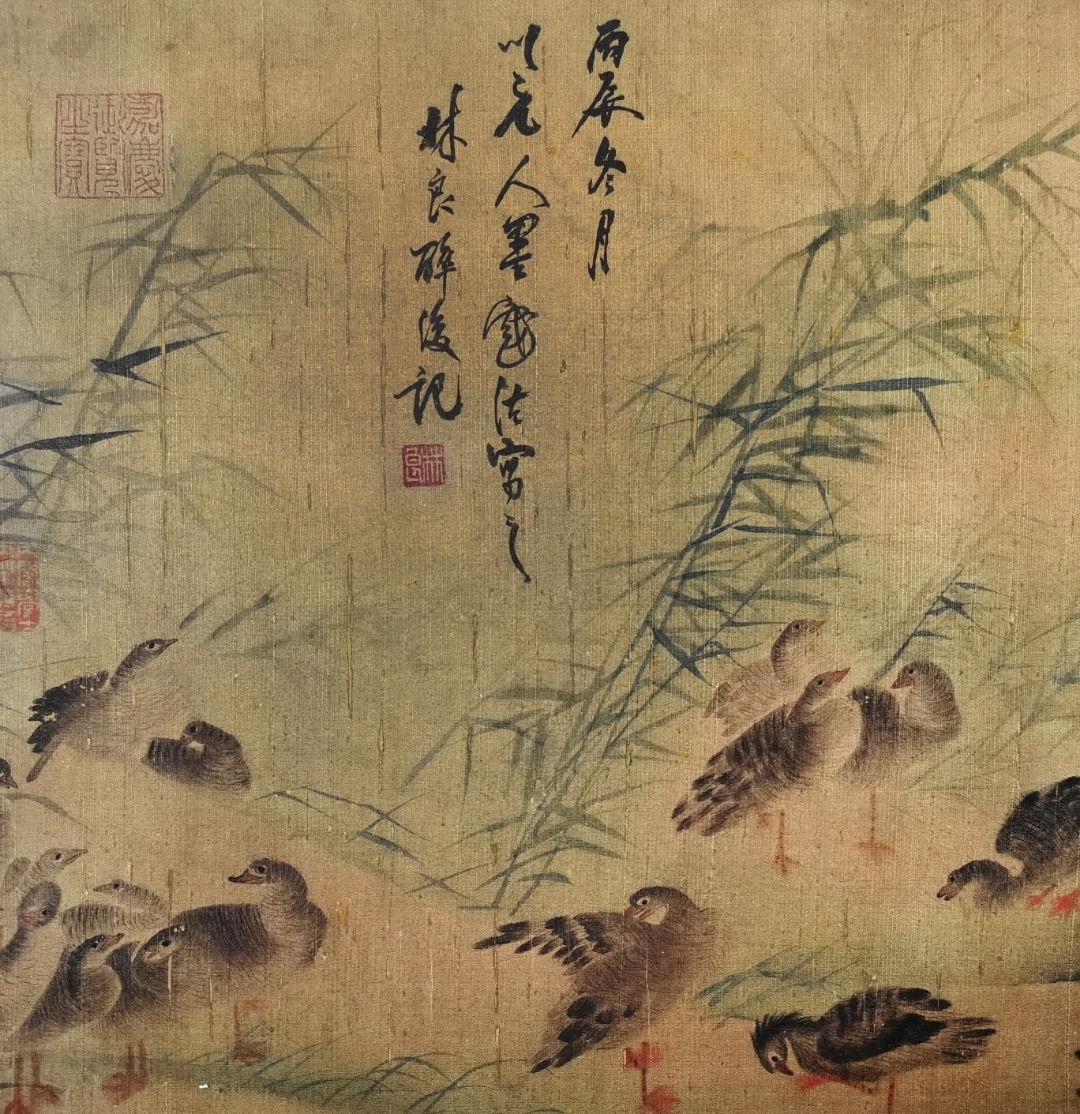 丙辰冬月
以元人墨戲法寫之
林良醉後記
林良
嘉慶御覽之寶